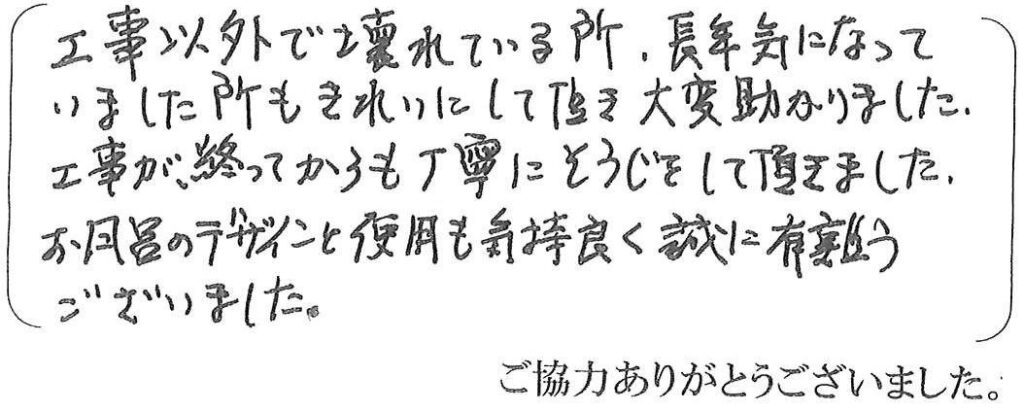 工事以外で壊れている所、長年気になって
いました所もきれいにして頂き大変助かりました、
工事が、終ってからも丁寧にそうじをして頂きました、
お風呂のデザインと使用も気持良く誠に有難う
ございました。
ご協力ありがとうございました。